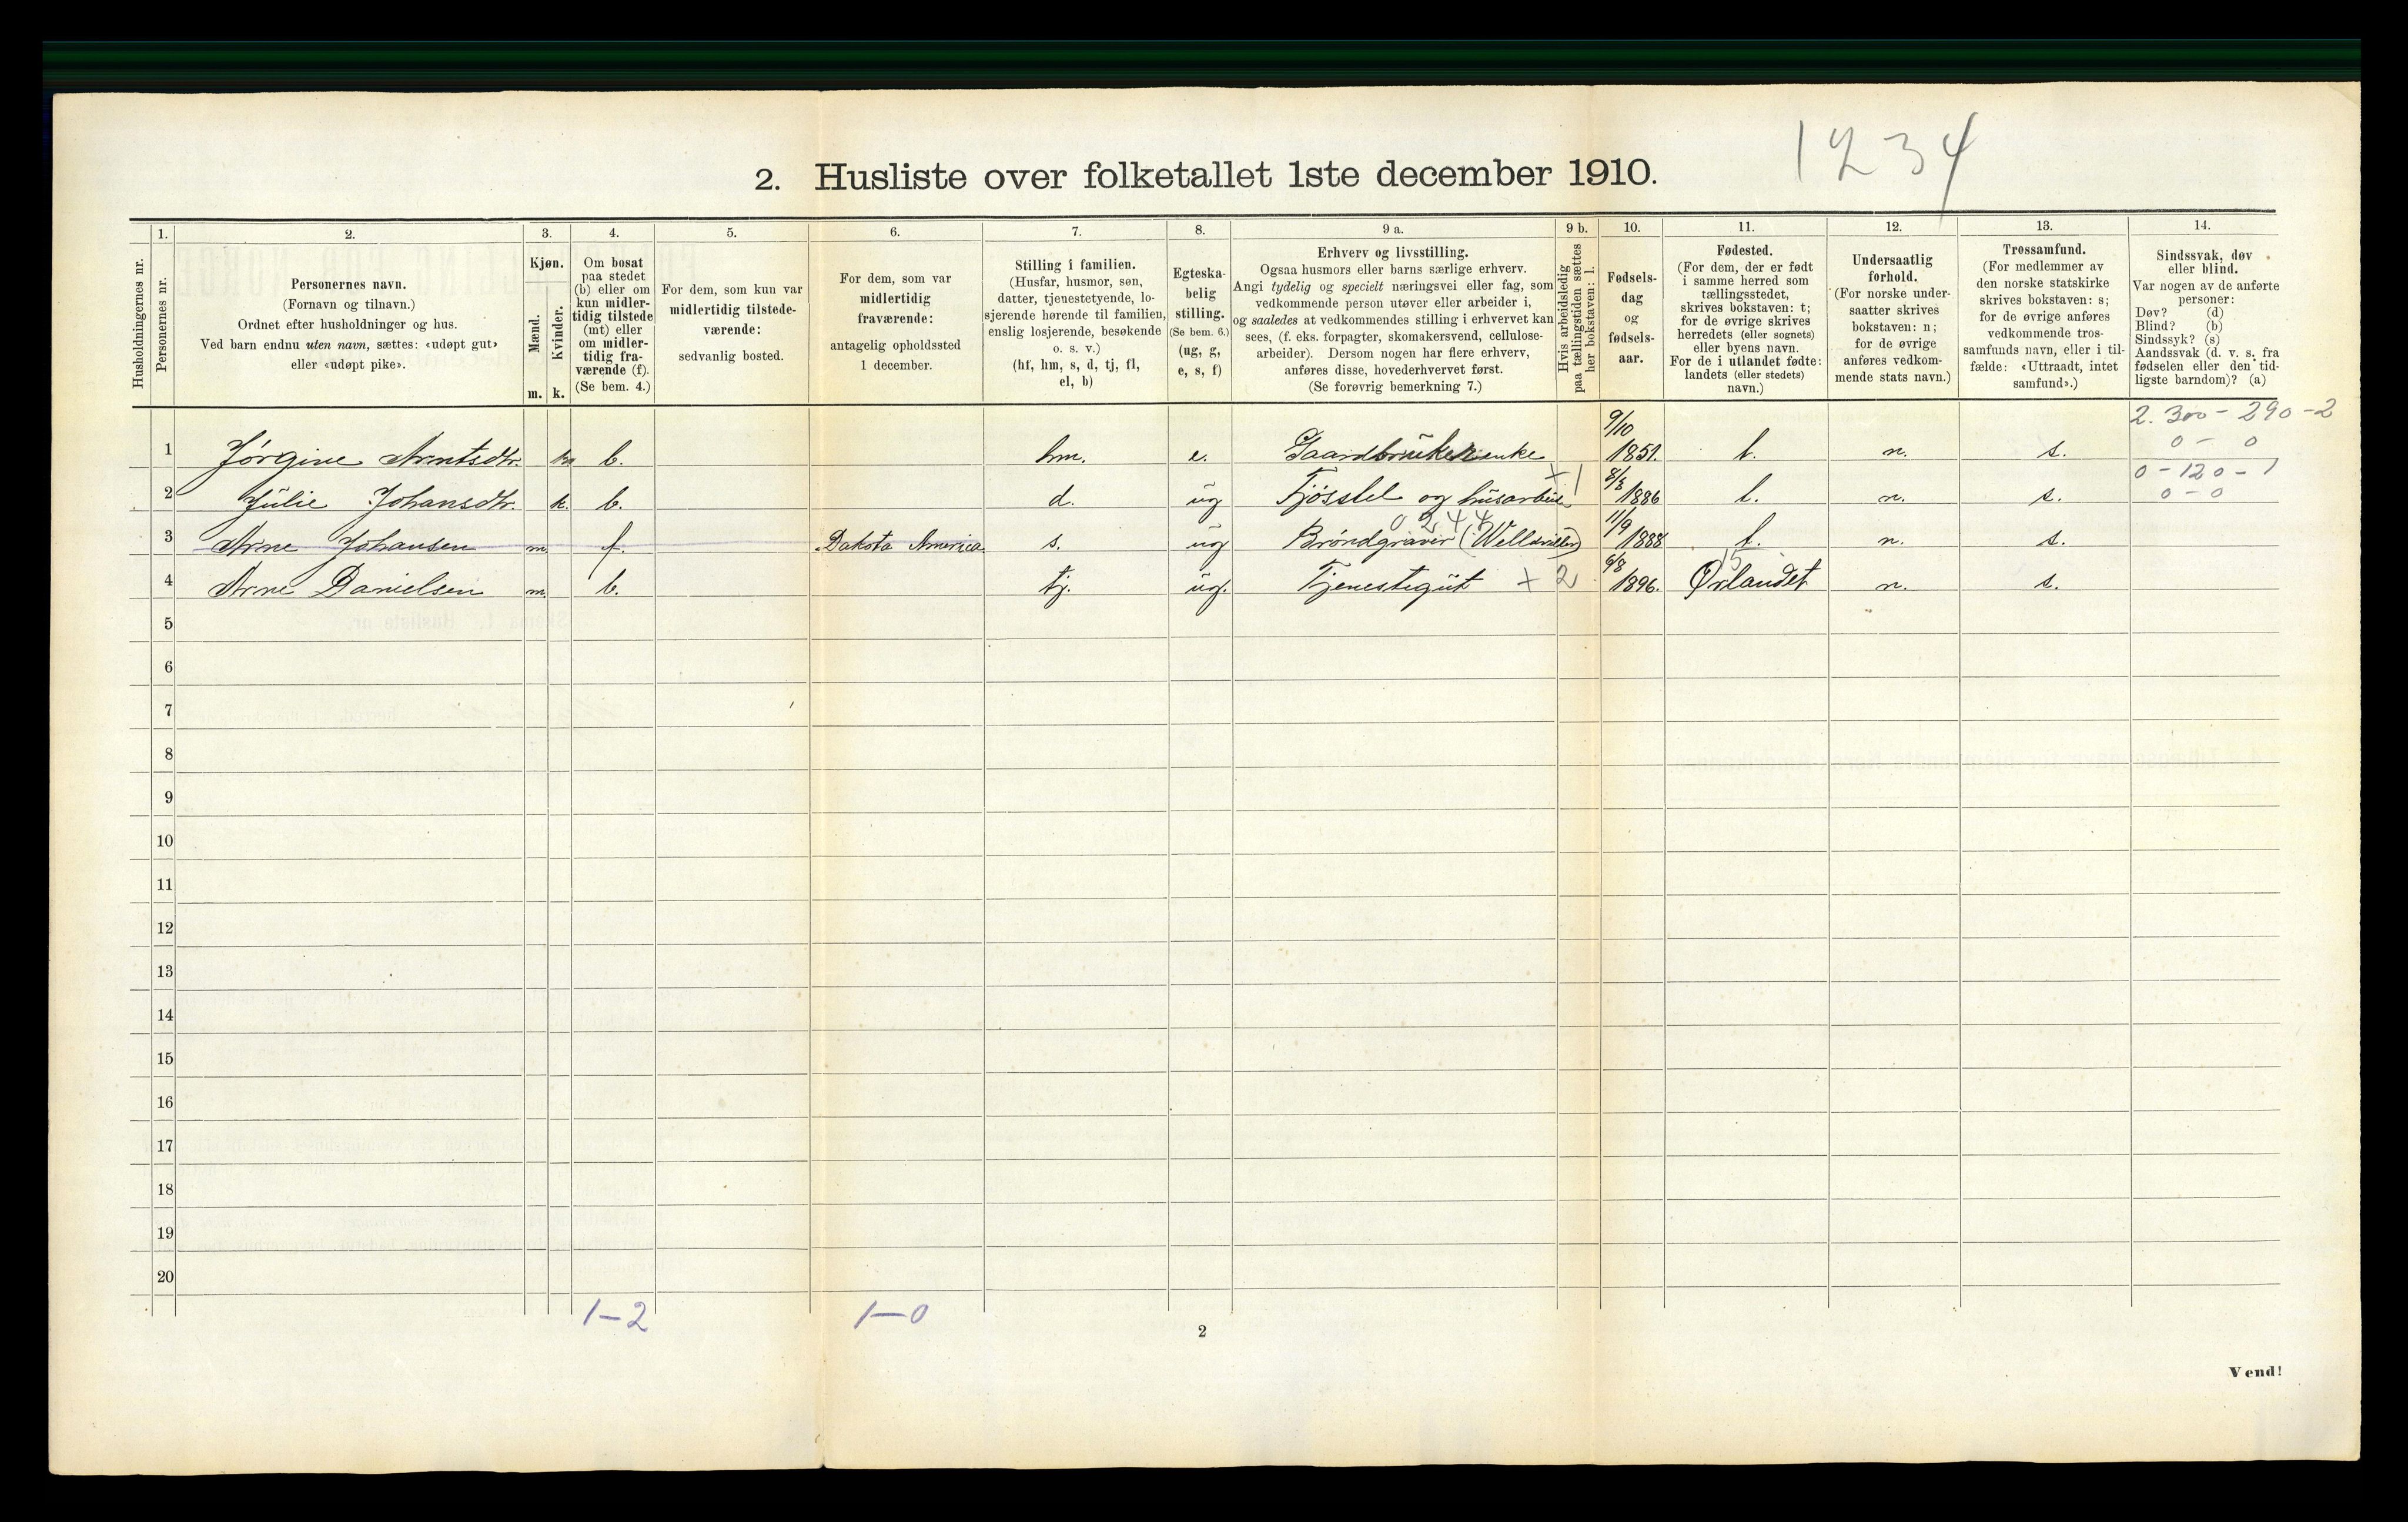 1234
2. Husliste over folketallet 1ste december 1910.
1. 2. 3. 4. 5. 6. 7. 8. 9 a. 9 b. 10. 11. 12. 13. 14.
Husholdningernes nr.
Personernes nr.
Personernes navn.
(Fornavn og tilnavn.)
Ordnet efter husholdninger og hus.
Ved barn endnu uten navn, sættes: «udøpt gut»
eller «udøpt pike».
Kjøn.
Mænd.
Kvinder.
m. k.
Om bosat
paa stedet
(b) eller om
kun midler-
tidig tilstede
(mt) eller
om midler-
tidig fra-
værende (f).
(Se bem. 4.)
For dem, som kun var
midlertidig tilstede-
værende:
sedvanlig bosted.
For dem, som var
midlertidig
fraværende:
antagelig opholdssted
1 december.
Stilling i familien.
(Husfar, husmor, søn,
datter, tjenestetyende, lo-
sjerende hørende til familien,
enslig losjerende, besøkende
o. s. v.)
(hf, hm, s, d, tj, fl,
el, b)
Egteska-
belig
stilling.
(Se bem. 6.)
(ug, g,
e, s, f)
Erhverv og livsstilling.
Ogsaa husmors eller barns særlige erhverv.
Angi tydelig og specielt næringsvei eller fag, som
vedkommende person utøver eller arbeider i,
og saaledes at vedkommendes stilling i erhvervet kan
sees, (f. eks. forpagter, skomakersvend, cellulose-
arbeider). Dersom nogen har flere erhverv,
anføres disse, hovederhvervet først.
(Se forøvrig bemerkning 7.)
Hvis arbeidsledig
paa tællingstiden sættes
her bokstaven: l.
Fødsels-
dag
og
fødsels-
aar.
Fødested.
(For dem, der er født
i samme herred som
tællingsstedet,
skrives bokstaven: t;
for de øvrige skrives
herredets (eller sognets)
eller byens navn.
For de i utlandet fødte:
landets (eller stedets)
navn.)
Undersaatlig
forhold.
(For norske under-
saatter skrives
bokstaven: n;
for de øvrige
anføres vedkom-
mende stats navn.)
Trossamfund.
(For medlemmer av
den norske statskirke
skrives bokstaven: s;
for de øvrige anføres
vedkommende tros-
samfunds navn, eller i til-
fælde: «Uttraadt, intet
samfund».)
Sindssvak, døv
eller blind.
Var nogen av de anførte
personer:
Døv? (d)
Blind? (b)
Sindssyk? (s)
Aandssvak (d. v. s. fra
fødselen eller den tid-
ligste barndom)? (a)
2. 300 - 290 - 2
0 - 0
1 Jørgine Arntsdtr. k. b. hm. e. Gaardbrukerenke 9/10 1851. t. n. s.
0 - 120 - 1
0 - 0
2 Julie Johansdtr. k. b. d. ug Fjøsstel og husarbeide + 1 8/8 1886 t. n. s.
0244
3 Arne Johansen m f. Dakota America s. ug Brøndgraver (Welldriller) 11/9 1888 t. n. s.
15
4 Arne Danielsen m. b. tj. ug. Tjenestegut + 2 6/8 1896. Ørlandet n. s.
5
6
7
8
9
10
11
12
13
14
15
16
17
18
19
20
1-2 1-0
2
Vend!